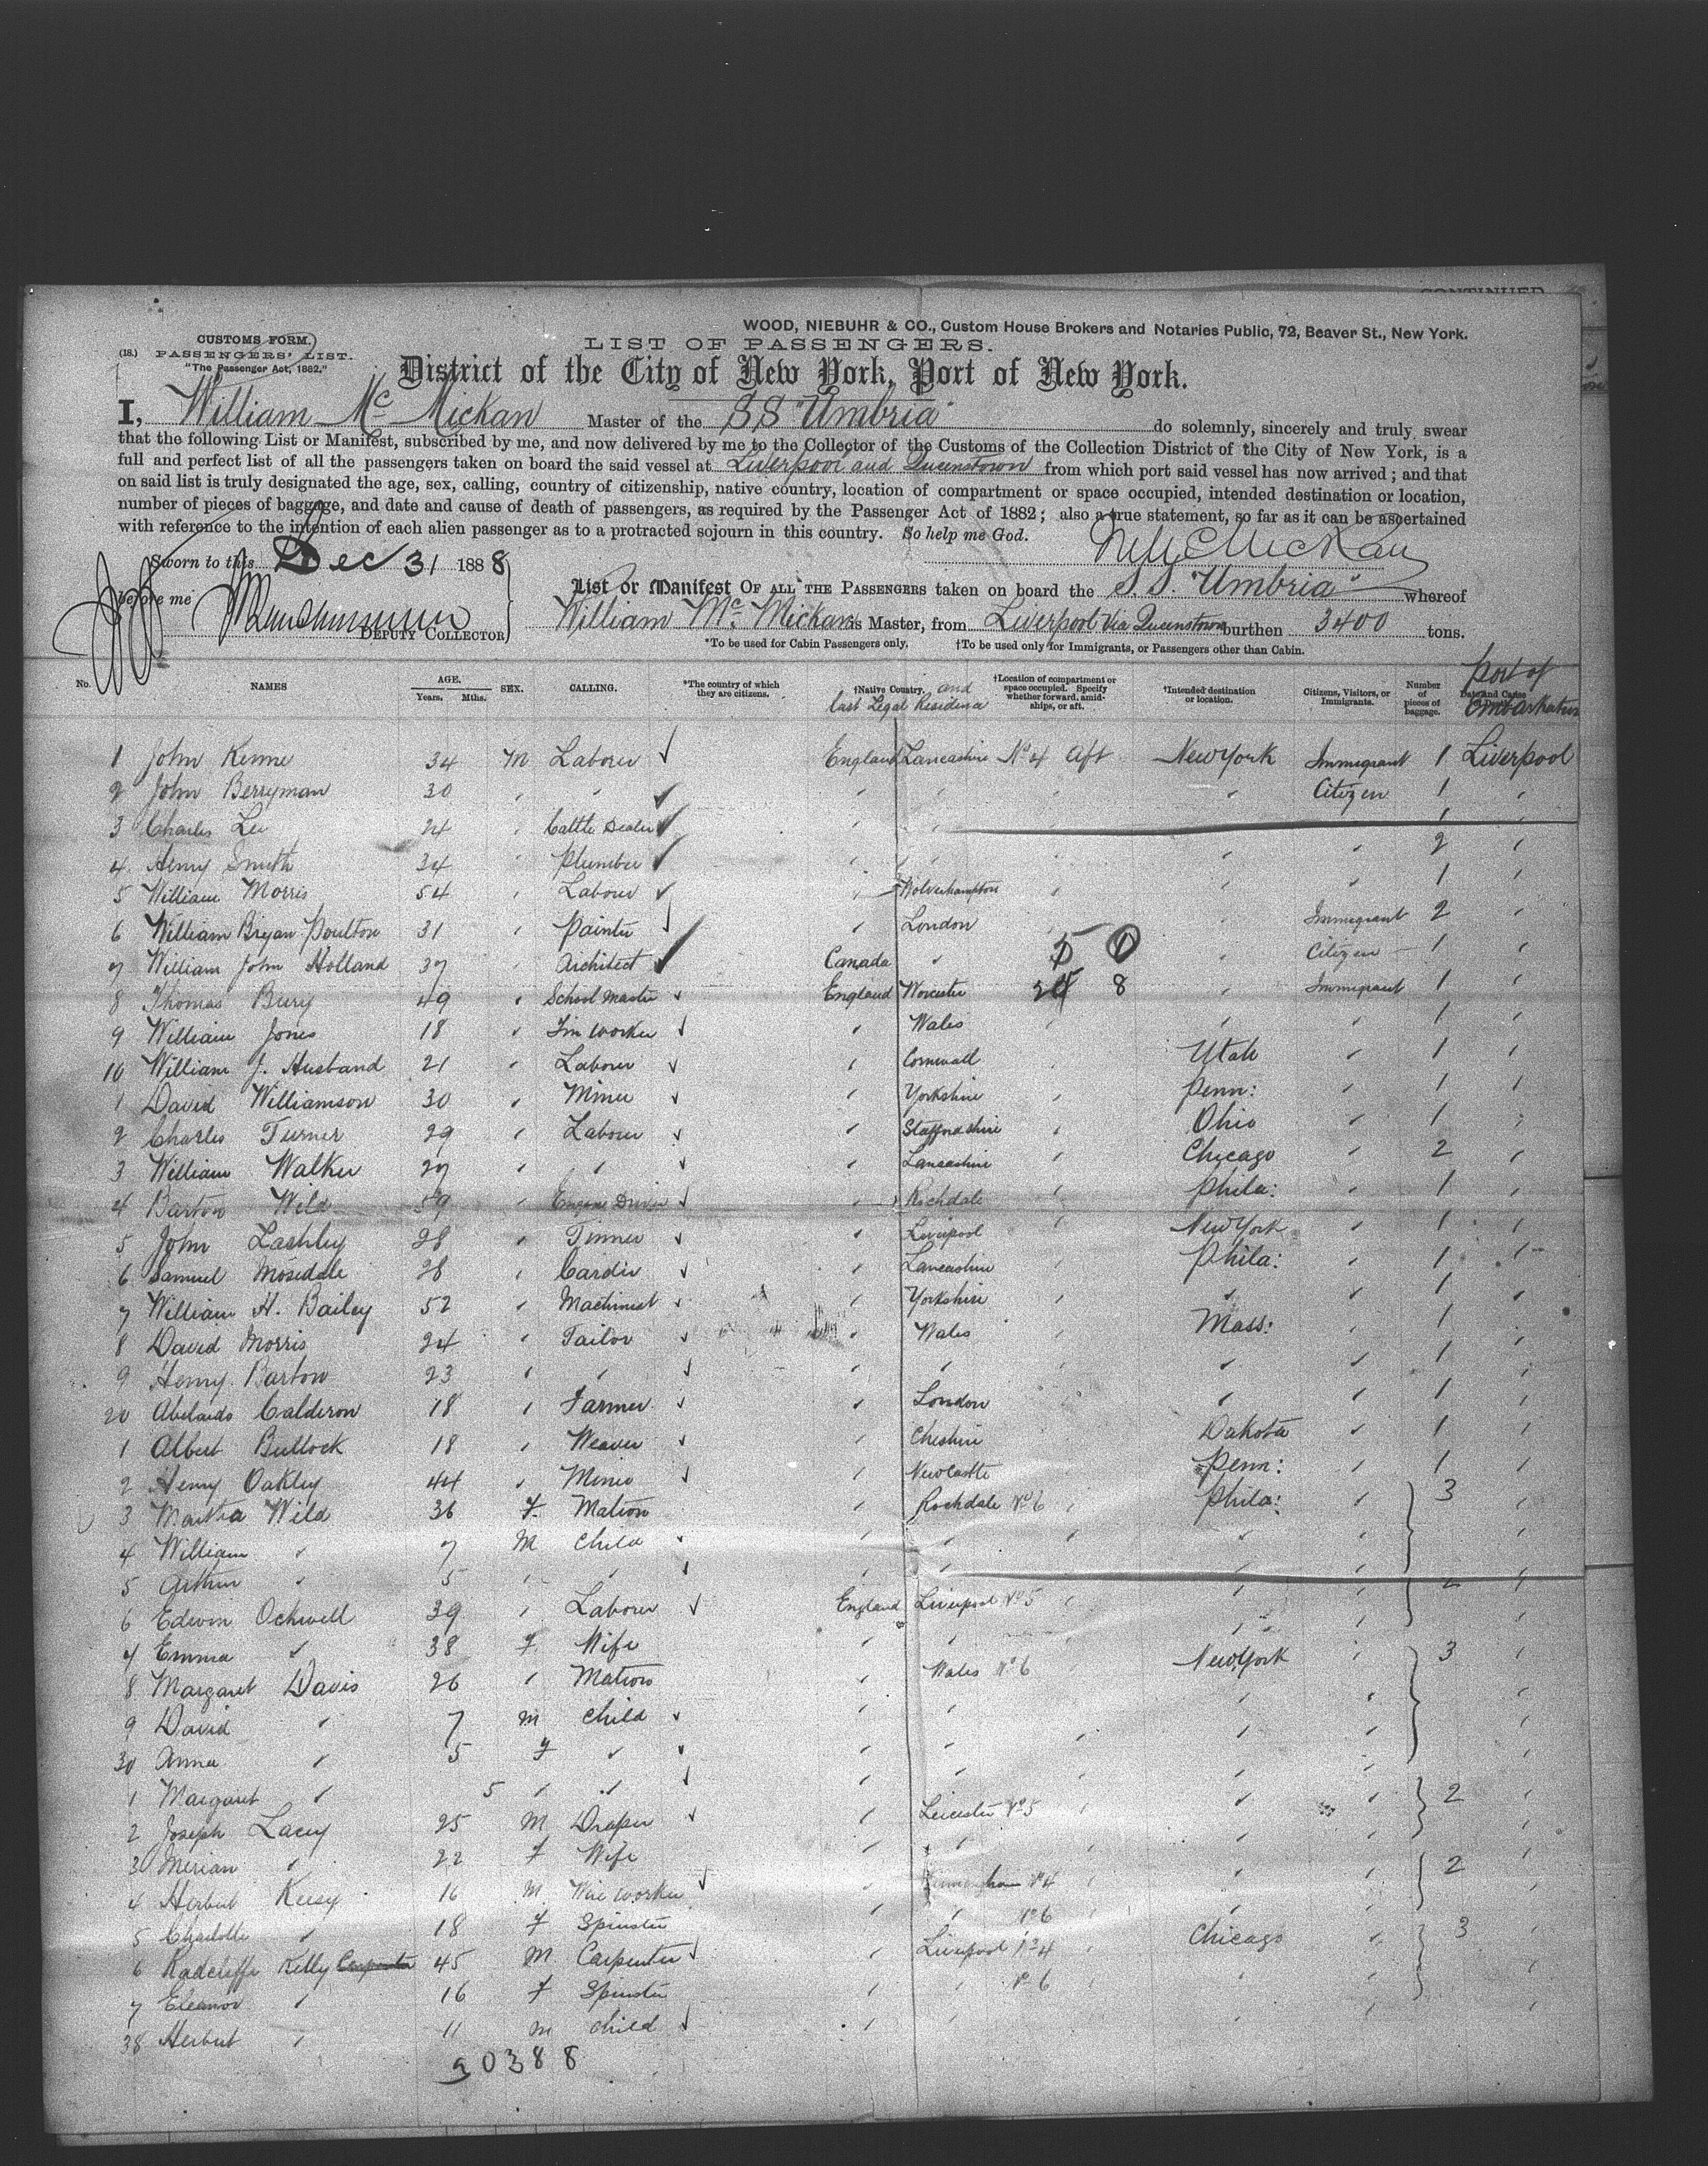 CONTINUED
WOOD, NIEBUHR & CO., Custom House Brokers and Notaries Public, 72, Beaver St., New York.
CUSTOMS FORM.
(18.) PASSENGERS' LIST.
"The Passenger Act, 1882."
LIST OF PASSENGERS.
District of the City of New York, Port of New York.
I, William Mc Mickan Master of the SS "Umbria" do solemnly, sincerely and truly swear
that the following List or Manifest, subscribed by me, and now delivered by me to the Collector of the Customs of the Collection District of the City of New York, is a
full and perfect list of all the passengers taken on board the said vessel at Liverpool and Queenstown from which port said vessel has now arrived; and that
on said list is truly designated the age, sex, calling, country of citizenship, native country, location of compartment or space occupied, intended destination or location,
number of pieces of baggage, and date and cause of death of passengers, as required by the Passenger Act of 1882; also a true statement, so far as it can be ascertained
with reference to the intention of each alien passenger as to a protracted sojourn in this country. So help me God.
Sworn to this Dec 31 1888
before me
DEPUTY COLLECTOR
List or Manifest OF ALL THE PASSENGERS taken on board the S.S. "Umbria" whereof
William Mc Mickan is Master, from Liverpool via Queenstown burthen 3400 tons.
*To be used for Cabin Passengers only. †To be used only for Immigrants, or Passengers other than Cabin.
No. NAMES AGE. Years. Mths. SEX. CALLING. *The country of which they are citizens. †Native Country. and last Legal Residence †Location of compartment or space occupied. Specify whether forward, amidships, or aft. †Intended destination or location. Citizens, Visitors, or Immigrants. Number of pieces of baggage. Port of Embarkation
1 John Kenne 34 M Labourer England Lancashire No 4 aft New York Immigrant 1 Liverpool
2 John Berryman 30 " " " " " " " Citizen 1 "
3 Charles Lee 24 " Cattle Dealer " " 1
4 Henry Smith 34 " Plumber " " " " " 2 "
5 William Morris 54 " Labourer " Wolverhampton " " " 1 "
6 William Bryan Poulton 31 " Painter " London " Immigrant 2 "
7 William John Holland 37 " Architect Canada " " Citizen 1 "
8 Thomas Bury 49 " School Master England Worcester 8 " Immigrant 1 "
9 William Jones 18 " Tin Worker " Wales " " " 1 "
10 William J. Husband 21 " Labourer " Cornwall " Utah " 1 "
1 David Williamson 30 " Miner " Yorkshire " Penn: " 1 "
2 Charles Turner 29 " Labourer " Staffordshire " Ohio " 1 "
3 William Walker 27 " " " Lancashire " Chicago " 2 "
4 Barton Wild 59 " Engine Driver " Rochdale " Phila: " 1 "
5 John Lashley 28 " Tinner " Liverpool " New York " 1 "
6 Samuel Mosedale 28 " Carder " Lancashire " Phila: " 1 "
7 William H. Bailey 52 " Machinist " Yorkshire " " " 1 "
8 David Morris 24 " Tailor " Wales " Mass: " 1 "
9 Henry Barton 23 " " " " " " " 1 "
20 Abelardo Calderon 18 " Farmer " London " " " 1 "
1 Albert Bullock 18 " Weaver " Cheshire Dakota " 1 "
2 Henry Oakley 44 " Miner " Newcastle Penn: " 1 "
3 Martha Wild 36 F Matron " Rochdale No 6 " Phila: " 3 "
4 William " 7 M Child " " " " " "
5 Arthur " 5 " " " " " " "
6 Edwin Ockwell 39 " Labourer England Liverpool No 5 " " " "
7 Emma " 38 F Wife " " " " "
8 Margaret Davis 26 " Matron " Wales No 6 New York " 3 "
9 David " 7 M Child " " " " "
30 Anna " 5 F " " " " " " "
1 Margaret " 5 " " " " " " "
2 Joseph Lacey 25 M Draper " Leicester No 5 " " " 2 "
3 Merian " 22 F Wife " " " " " "
4 Herbert Keesy 16 M Wire Worker " No 4 " " " 2 "
5 Charlotte " 18 F Spinster " " No 6 " " " "
6 Radcliffe Kelly Carpenter 45 M Carpenter " Liverpool No 4 " Chicago " 3 "
7 Eleanor " 16 F Spinster " " No 6 " " " "
38 Herbert " 11 M Child " " " " " "
20388